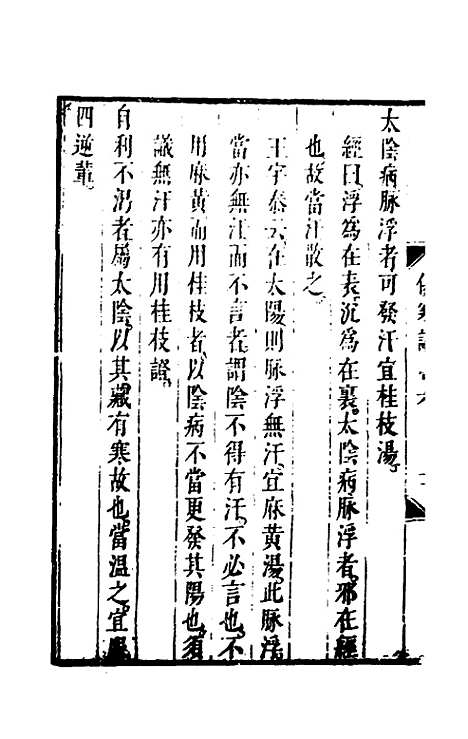 太陰病脈浮者可發汗宜桂枝湯
經曰浮為在表沉為在裏太陰病脈浮者邪在經
也故當汗散之
王宇泰云在太陽則脈浮無汗宜麻黃湯此脈浮
當亦無汗而不言者謂陰不得有汗不必言也不
用麻黃而用桂枝者以陰病不當更發其陽也須
識無汗亦有用桂枝證
自利不渴者屬太陰以其藏有寒故也當溫之宜
四逆輩